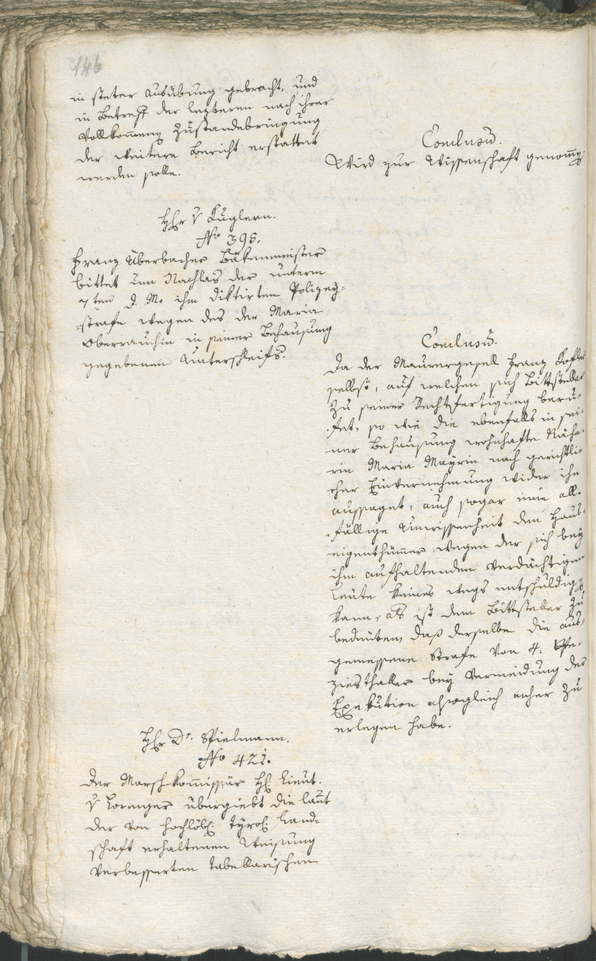 146
in steter Ausübung gebracht, und
in Betreff der lezteren nach ihrer
vollkommenen Zustandebringung
der weitere Bericht erstattet
werden solle.
Conclusũ.
Wird zur Wissenschaft genom̄en.
Hhr v Kuglern.
No 395.
Franz Überbacher Bäkenmeister
bittet um Nachlas der unterm
7ten d. Ms. ihm diktirten Polizey-
strafe wegen des der Maria
Oberrauchin in seiner Behausung
gegebenen Unterschleifs.
Conclusũ.
Da der Maurergesell Franz Kofler
selbst, auf welchen sich Bittsteller
zu seiner Rechtfertigung beru-
fet, so wie die ebenfalls in sei-
ner Behausung wohnhafte Nähe-
rin Maria Mayrin nach gerichtli-
cher Einvernehmung wider ihn
aussaget, auch sogar eine all-
fällige Unwissenheit den Haus-
eigenthümer wegen der sich bey
ihm aufhaltenden verdächtigen
Leute keines wegs entschuldigen
kann, als ist dem Bittsteller zu
bedeuten, daß derselbe die aus-
gemessene Strafe von 4. Spe-
ziesthaler bey Vermeidung der
Exekution alsogleich anher zu
erlegen habe.
Hhr Dr. Spielmann.
No 421.
Der Marsch-kom̄issär H. Lieut.
v Loranger übergiebt die laut
der von hochlöbl. tyrol. Land-
schaft erhaltenen Weisung
verbesserten tabellarischen